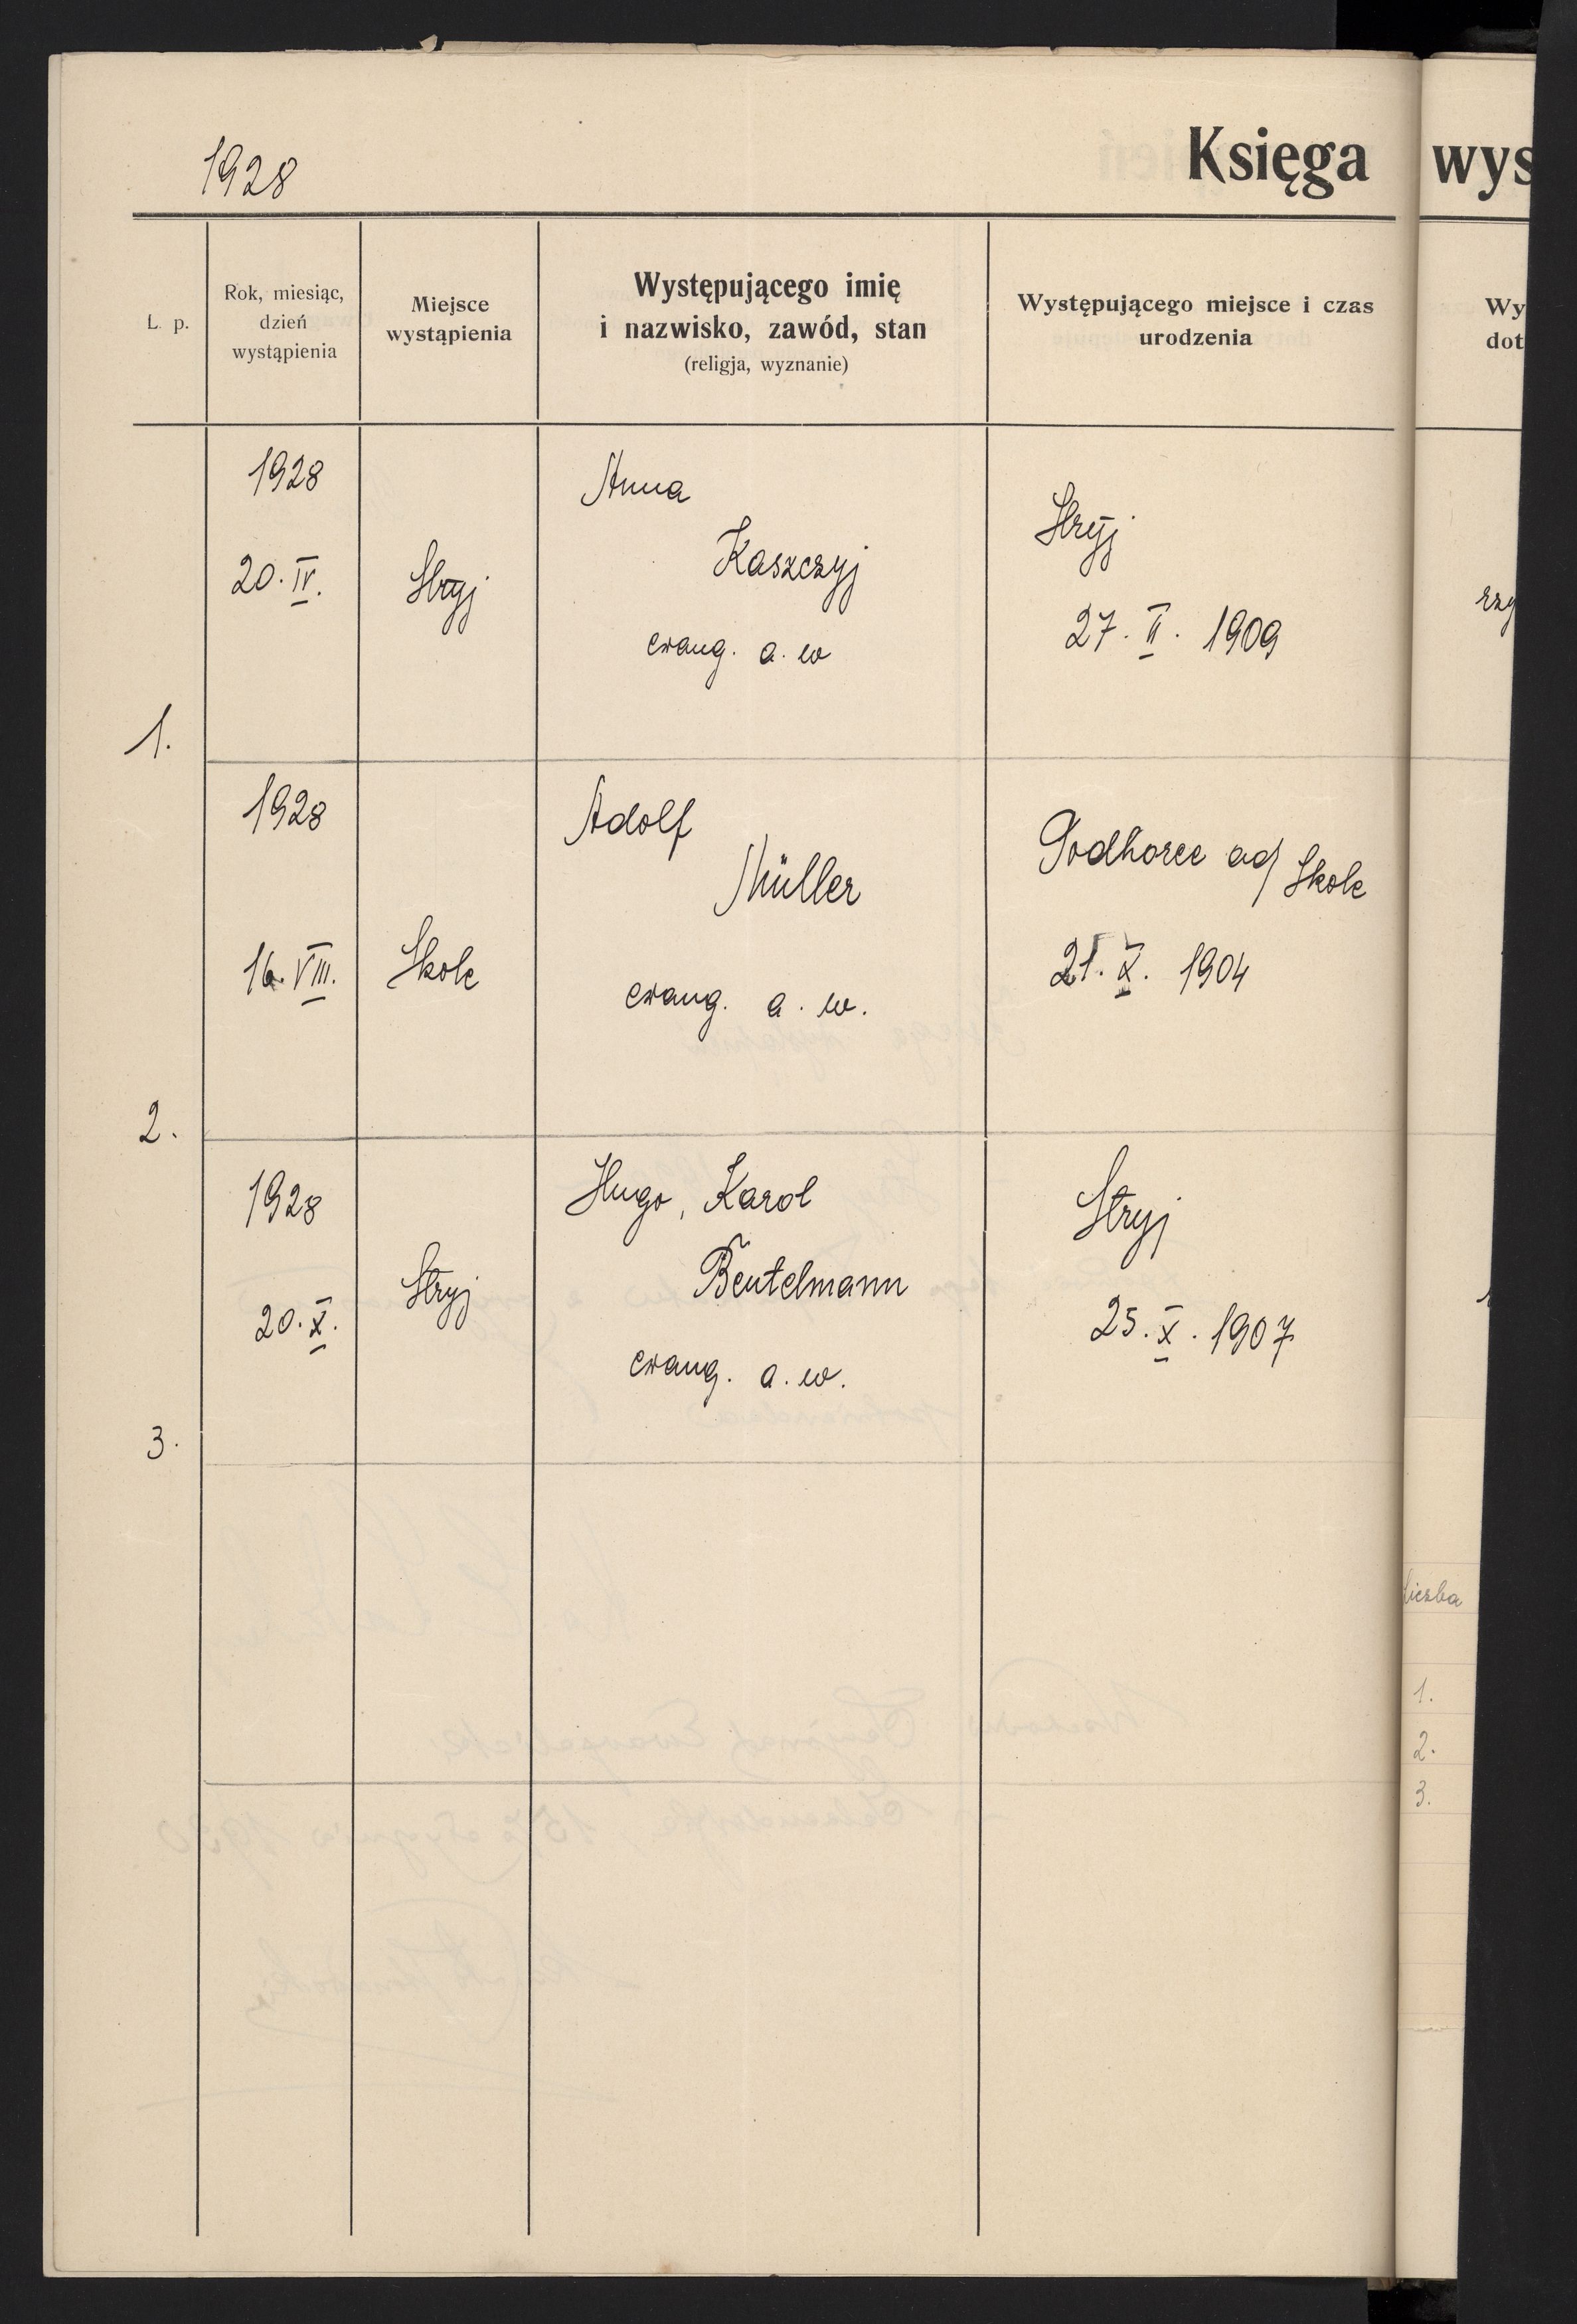 1928
Księga wys
L. p.
Rok, miesiąc,
dzień
wystąpienia
Miejsce
wystąpienia
Występującego imię
i nazwisko, zawód, stan
(religja, wyznanie)
Występującego miejsce i czas
urodzenia
Wy
dot
1.
1928
20. IV.
Stryj
Anna
Kaszczyj
ewang. a. w
Stryj
27. II. 1909
rzy
2.
1928
16. VIII.
Skole
Adolf
Müller
ewang. a. w.
Podhorce ad/ Skole
21. X. 1904
3.
1928
20. X.
Stryj
Hugo, Karol
Beutelmann
ewang. a. w.
Stryj
25. X. 1907
liczba
1.
2.
3.